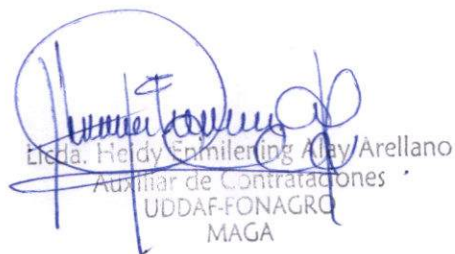 Licda. Heidy Enmilening Alay Arellano
Auxiliar de Contrataciones
UDDAF-FONAGRO
MAGA